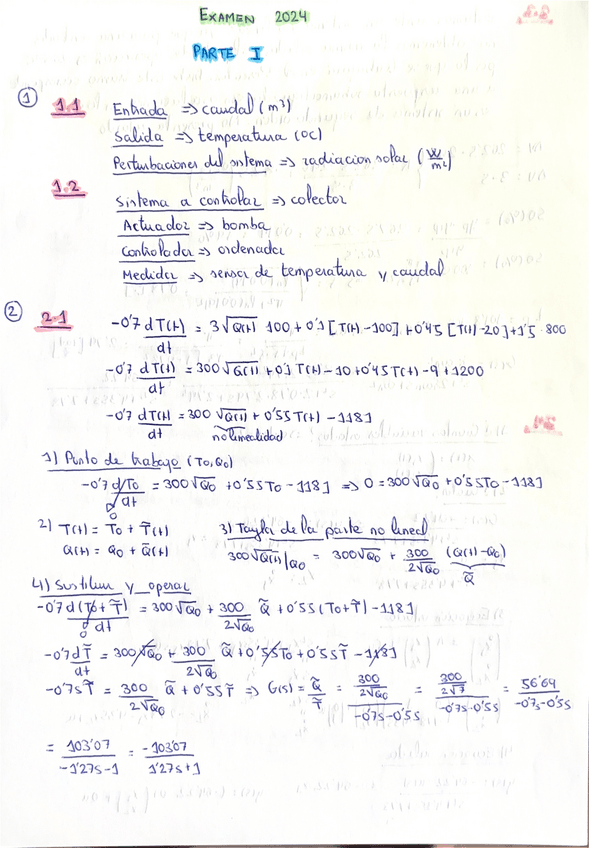 EXAMEN 2024
PARTE I
① 1.1 Entrada => caudal (m³)
Salida => temperatura (ºC)
Perturbaciones del sistema => radiacion solar (W/m²)
1.2 Sistema a controlar => colector
Actuador => bomba
Controlador => ordenador
Medidor => sensor de temperatura y caudal
② 2.1 -0'7 dT(t)/dt = 3√Q(t) 100 + 0'1 [T(t)-100] + 0'45 [T(t)-20] + 1'5 · 800
-0'7 dT(t)/dt = 300√Q(t) + 0'1 T(t) - 10 + 0'45 T(t) - 9 + 1200
-0'7 dT(t)/dt = 300 √Q(t) + 0'55 T(t) - 1181
no linealidad
1) Punto de trabajo (T0, Q0)
-0'7 dT0/dt = 300√Q0 + 0'55 T0 - 1181 => 0 = 300√Q0 + 0'55 T0 - 1181
0
2) T(t) = T0 + T̃(t) 3) Taylor de la parte no lineal
Q(t) = Q0 + Q̃(t) 300√Q(t)|Q0 = 300√Q0 + 300/2√Q0 (Q(t) - Q0)
Q̃
4) Sustituir y operar
-0'7 d(T0 + T̃)/dt = 300√Q0 + 300/2√Q0 Q̃ + 0'55 (T0 + T̃) - 1181
0
-0'7 dT̃/dt = 300√Q0 + 300/2√Q0 Q̃ + 0'55 T0 + 0'55 T̃ - 1181
-0'7s T̃ = 300/2√Q0 Q̃ + 0'55 T̃ => G(s) = Q̃/T̃ = 300/2√Q0 / -0'7s - 0'55 = 300/2√7 / -0'7s - 0'55 = 56'64 / -0'7s - 0'55
= 103'07 / -1'27s - 1 = -103'07 / 1'27s + 1